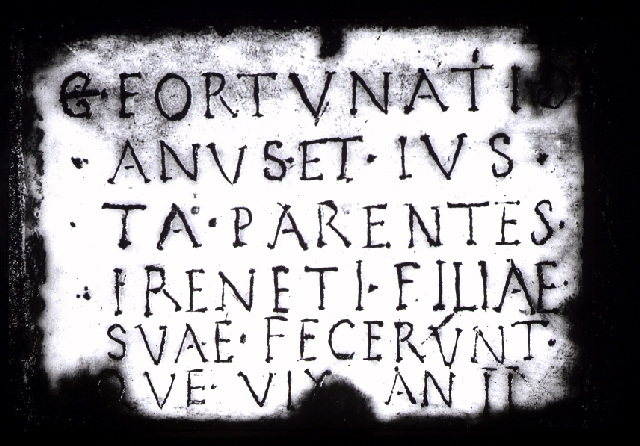 FORTVNATI
ANVS·ET· IVS ·
· TA · PARENTES ·
· IRENETI · FILIAE ·
SVAE · FECERVNT ·
QVE · VIX AN II